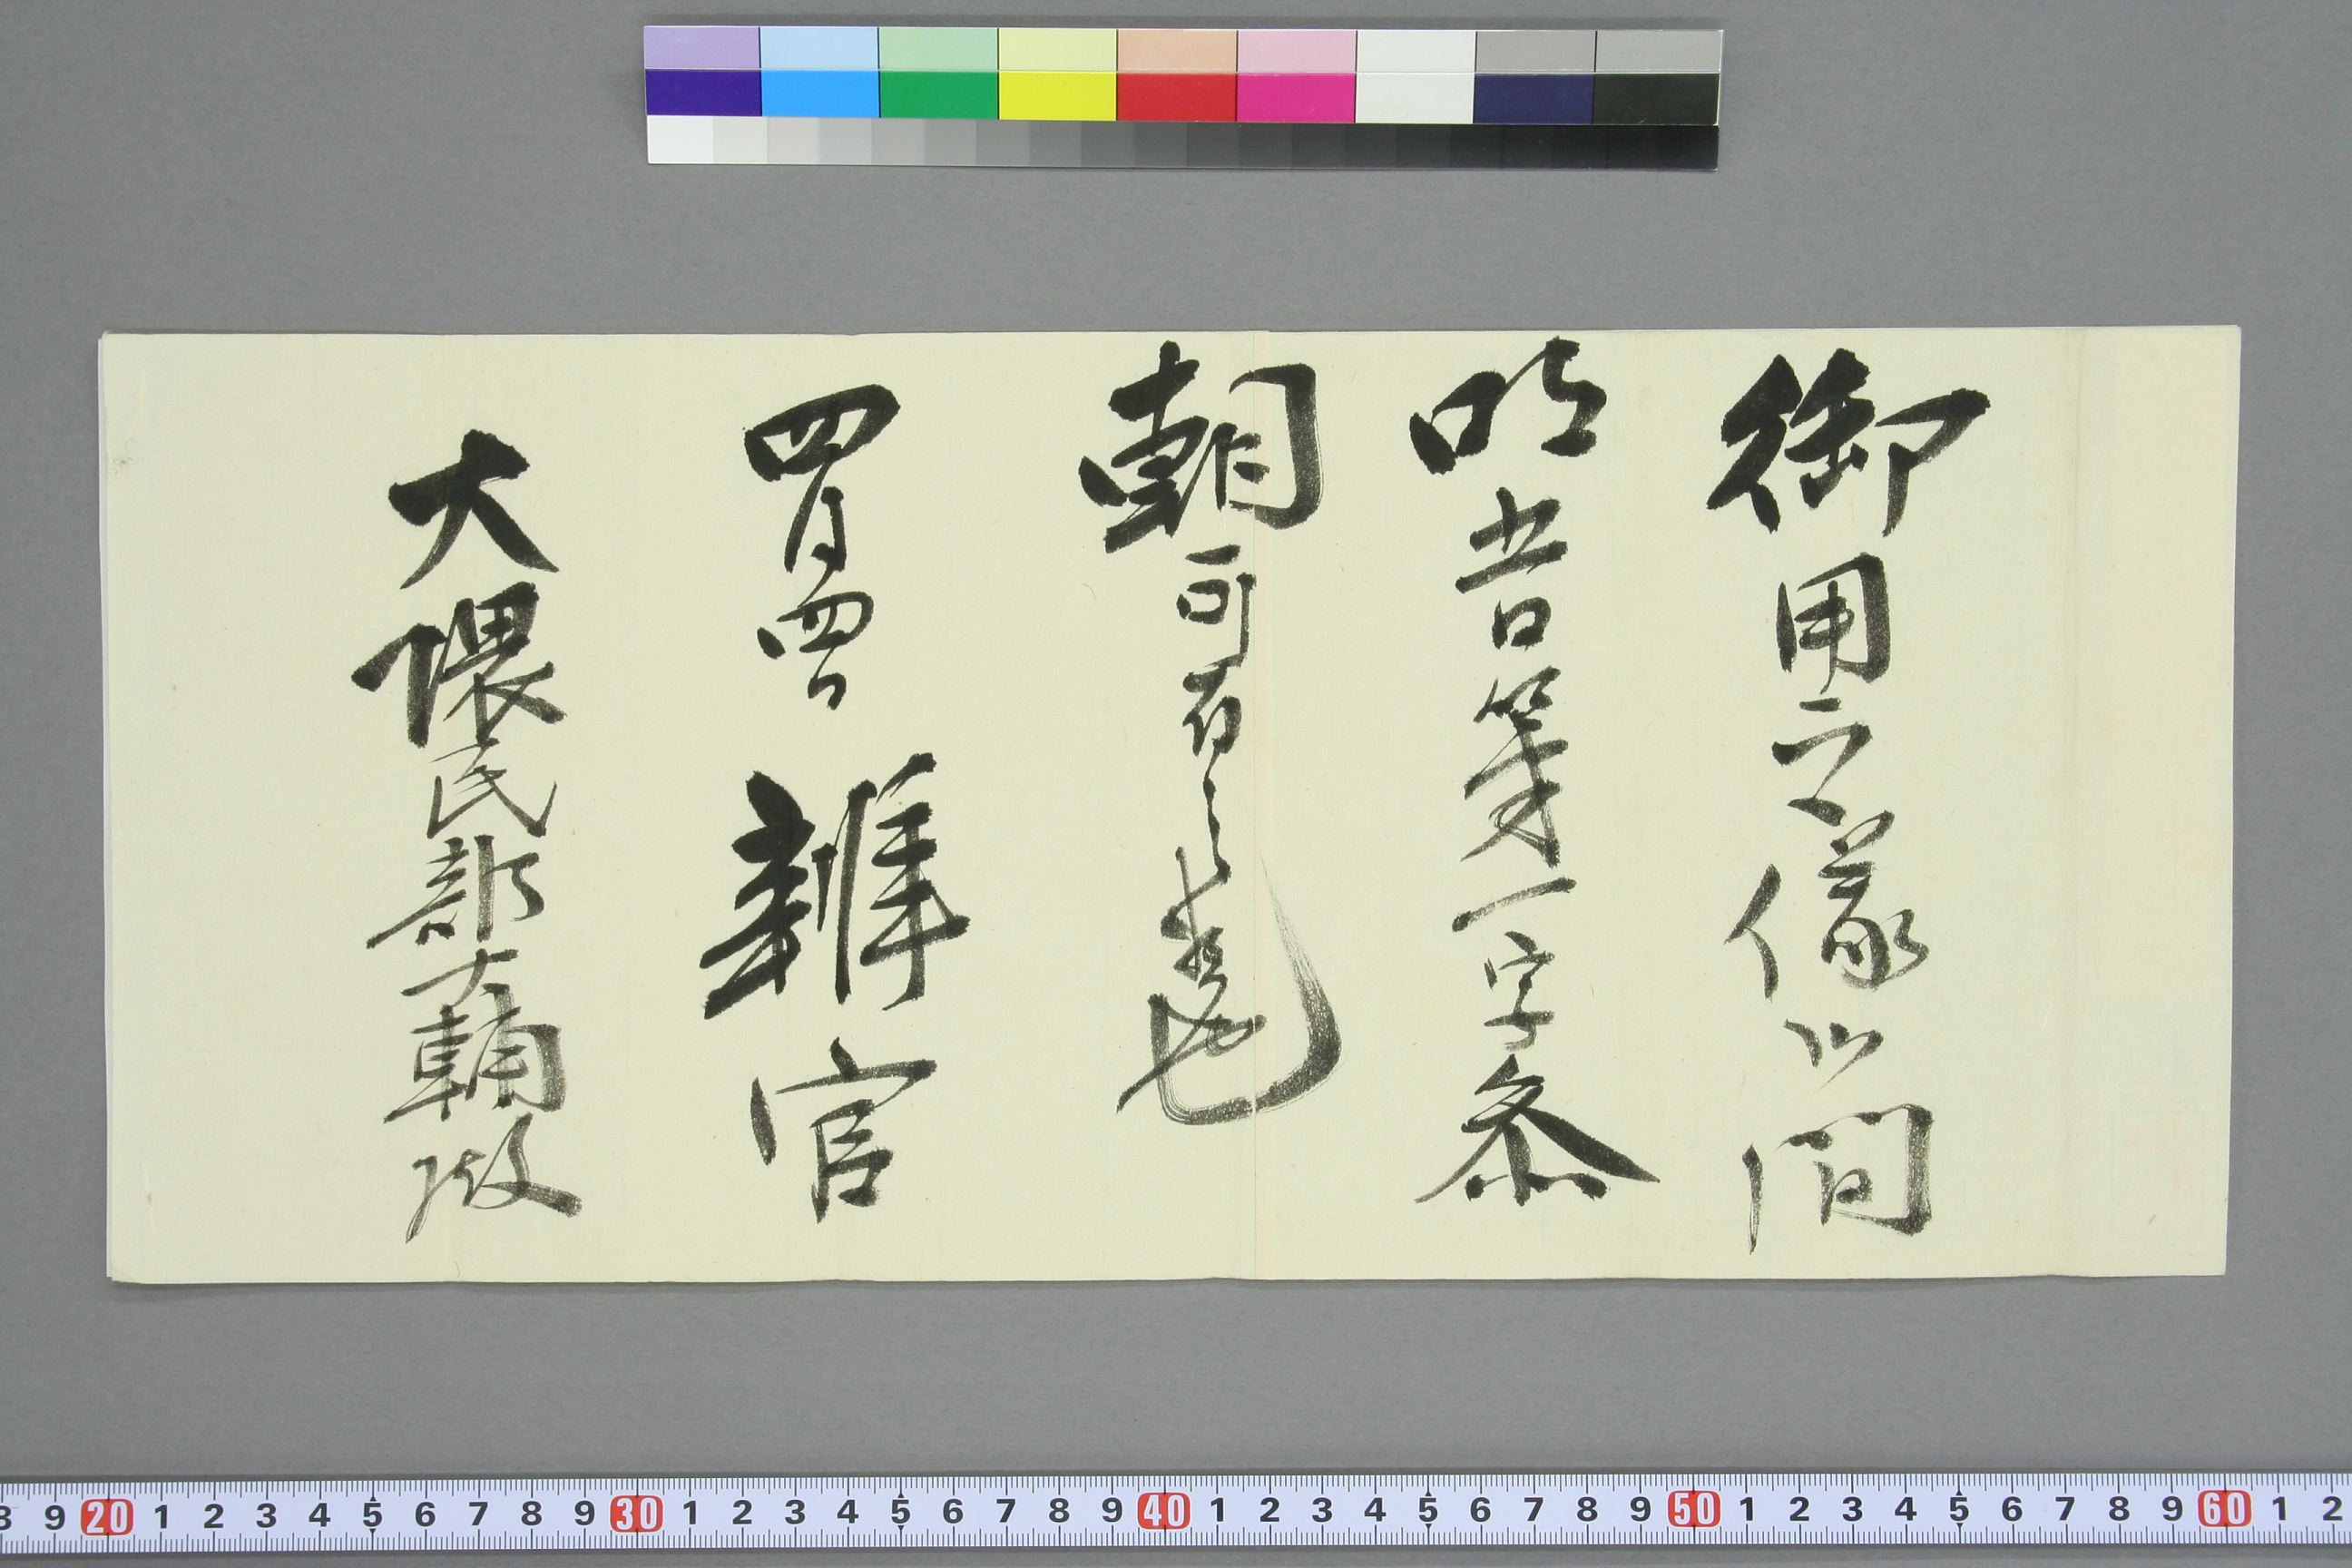 御用之儀候間
明五日第一字参
朝可有之候也
四月四日 辨官
大隈民部大輔殿
8 9 20 1 2 3 4 5 6 7 8 9 30 1 2 3 4 5 6 7 8 9 40 1 2 3 4 5 6 7 8 9 50 1 2 3 4 5 6 7 8 9 60 1 2